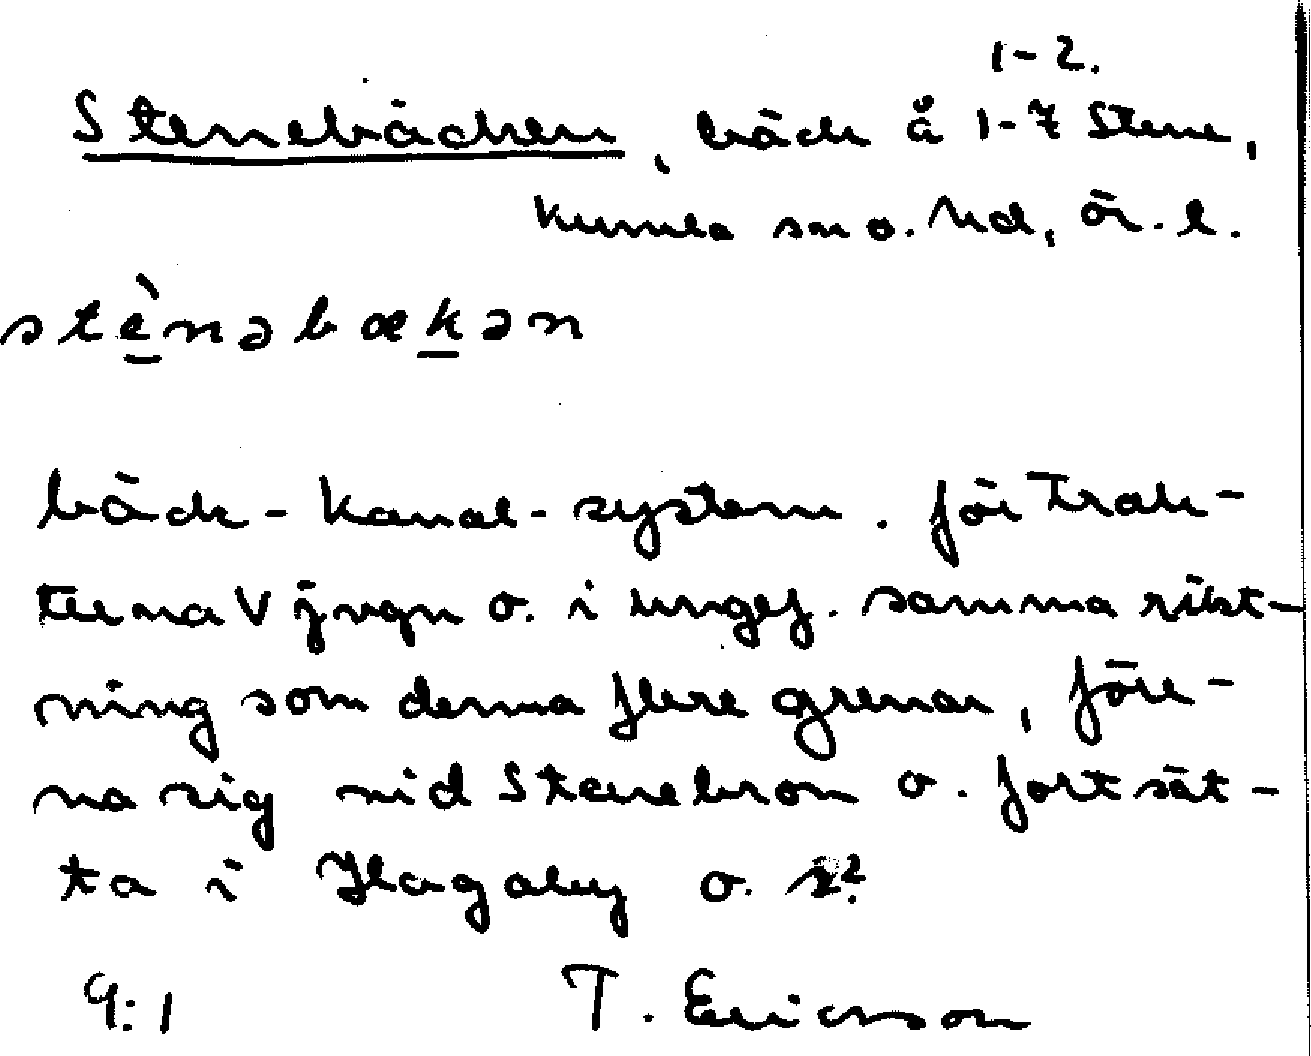 1-2.
Stenebäcken, bäck å 1-7 Stene,
Kumla sn o. hd, Ör. l.
stè̱nəbæḵən
bäck-kanal-system. för trak-
terna V jvgn o. i ungef. samma rikt-
ning som denna flere grenar, före-
na sig vid Stenebron o. fortsät-
ta i Hagaby o.
9:1 T. Ericsson